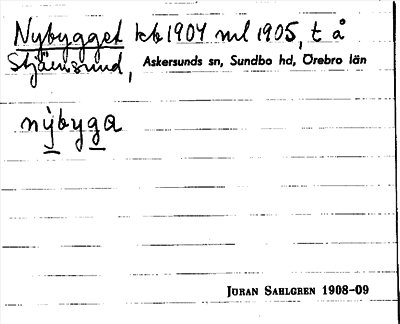 Nybygget kb 1904 ml 1905, t å
Stjärnsund, Askersunds sn, Sundbo hd, Örebro län
nỳbyga
JÖRAN SAHLGREN 1908-09